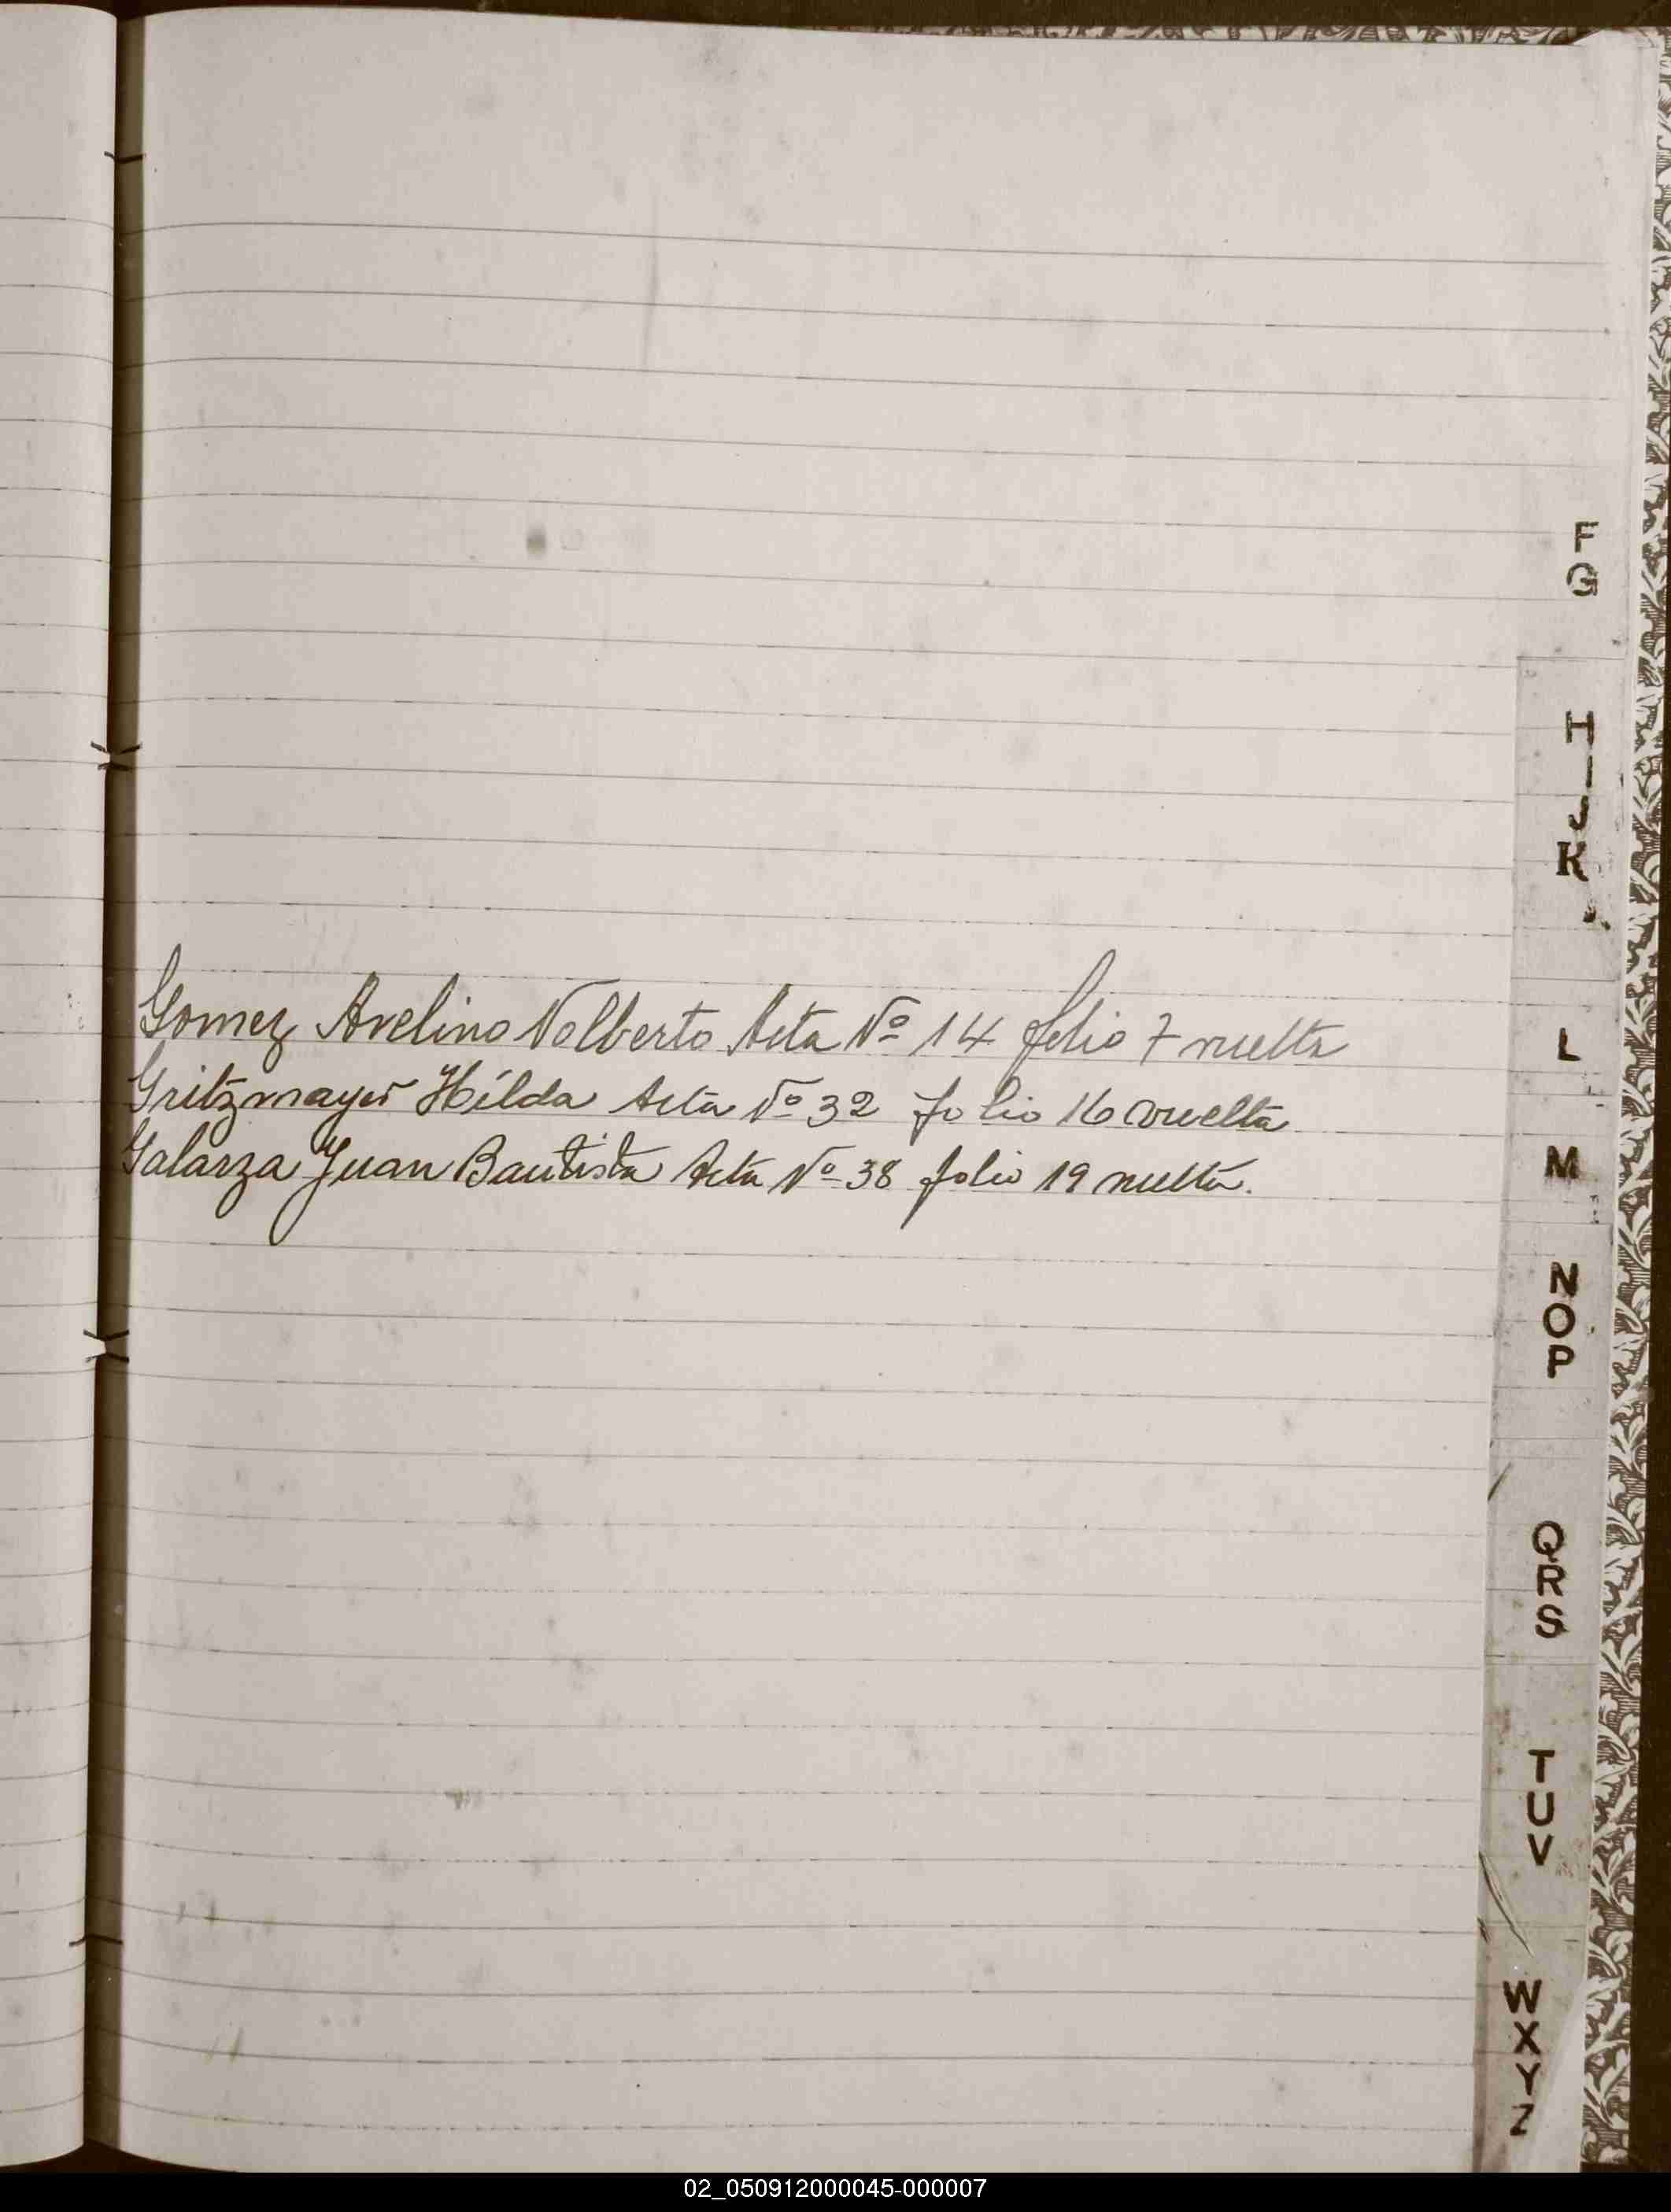 Gomez Avelino Nolberto Acta Nº 14 folio 7 vuelta
Gritzmayer Hilda Acta Nº 32 folio 16 vuelta
Galarza Juan Bautista Acta Nº 38 folio 19 vuelta.
F
G
H
I
J
K
L
M
N
O
P
Q
R
S
T
U
V
W
X
Y
Z
02_050912000045-000007